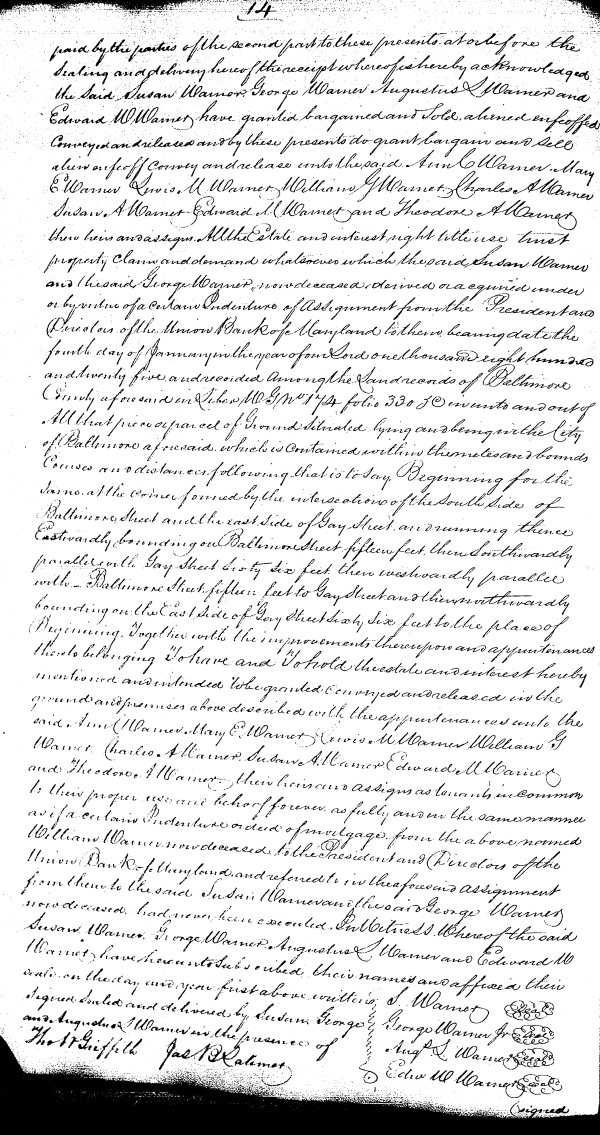 14
paid by the parties of the second part to these presents at or before the
Sealing and delivery hereof the receipt whereof is hereby acknowledged
the said Susan Warner George Warner Augustus L Warner and
Edward W Warner have granted bargained and Sold, aliened enfeoffed
Conveyed and released and by these presents do grant bargain and sell
alien enfeoff Convey and release unto the said Ann C Warner Mary
E Warner Lewis M Warner William G Warner Charles A Warner
Susan A Warner Edward M Warner and Theodore A Warner
their heirs and assigns. All the Estate and interest right title use trust
property Claim and demand whatsoever which the said Susan Warner
and the said George Warner, now deceased, derived or acquired under
or by virtue of a certain Indenture of Assignment from the President and
Directors of the Union Bank of Maryland to them, bearing date the
fourth day of January in the year of our Lord one thousand eight hundred
and twenty five and recorded Among the Land records of Baltimore
County aforesaid in Liber W G No 174 folio 330 &c in unto and out of
All that piece or parcel of Ground Situated lying and being in the City
of Baltimore aforesaid which is contained within the metes and bounds
Courses and distances following that is to say Beginning for the
same at the corner formed by the intersection of the South Side of
Baltimore Street and the east Side of Gay Street and running thence
Eastwardly bounding on Baltimore Street fifteen feet then Southwardly
parallel with Gay Street Sixty six feet then westwardly parallel
with Baltimore Street fifteen feet to Gay Street and then northwardly
bounding on the East Side of Gay Street Sixty Six feet to the place of
Beginning. Together with the improvements thereupon and appurtenances
thereto belonging To have and To hold the estate and interest hereby
mentioned and intended to be granted conveyed and released in the
ground and premises above described with the appurtenances unto the
said Ann C Warner Mary E. Warner Lewis M Warner William G
Warner Charles A Warner Susan A Warner Edward M Warner
and Theodore A Warner their heirs and assigns as tenants in common
to their proper use and behoof forever as fully and in the same manner
as if a certain Indenture or deed of mortgage from the above named
William Warner now deceased to the President and Directors of the
Union Bank of Maryland and referred to in the aforesaid assignment
from them to the said Susan Warner and the said George Warner
now deceased had never been executed. In Witness Whereof the said
Susan Warner George Warner Augustus L Warner and Edward W
Warner have hereunto Subscribed their names and affixed their
seals on the day and year first above written
Signed Sealed and delivered by Susan, George
and Augustus L Warner in the presence of
Tho W Griffith Jas B Latimer
S. Warner Seal
George Warner Jr Seal
Augs L Warner Seal
Edw W Warner Seal
Signed